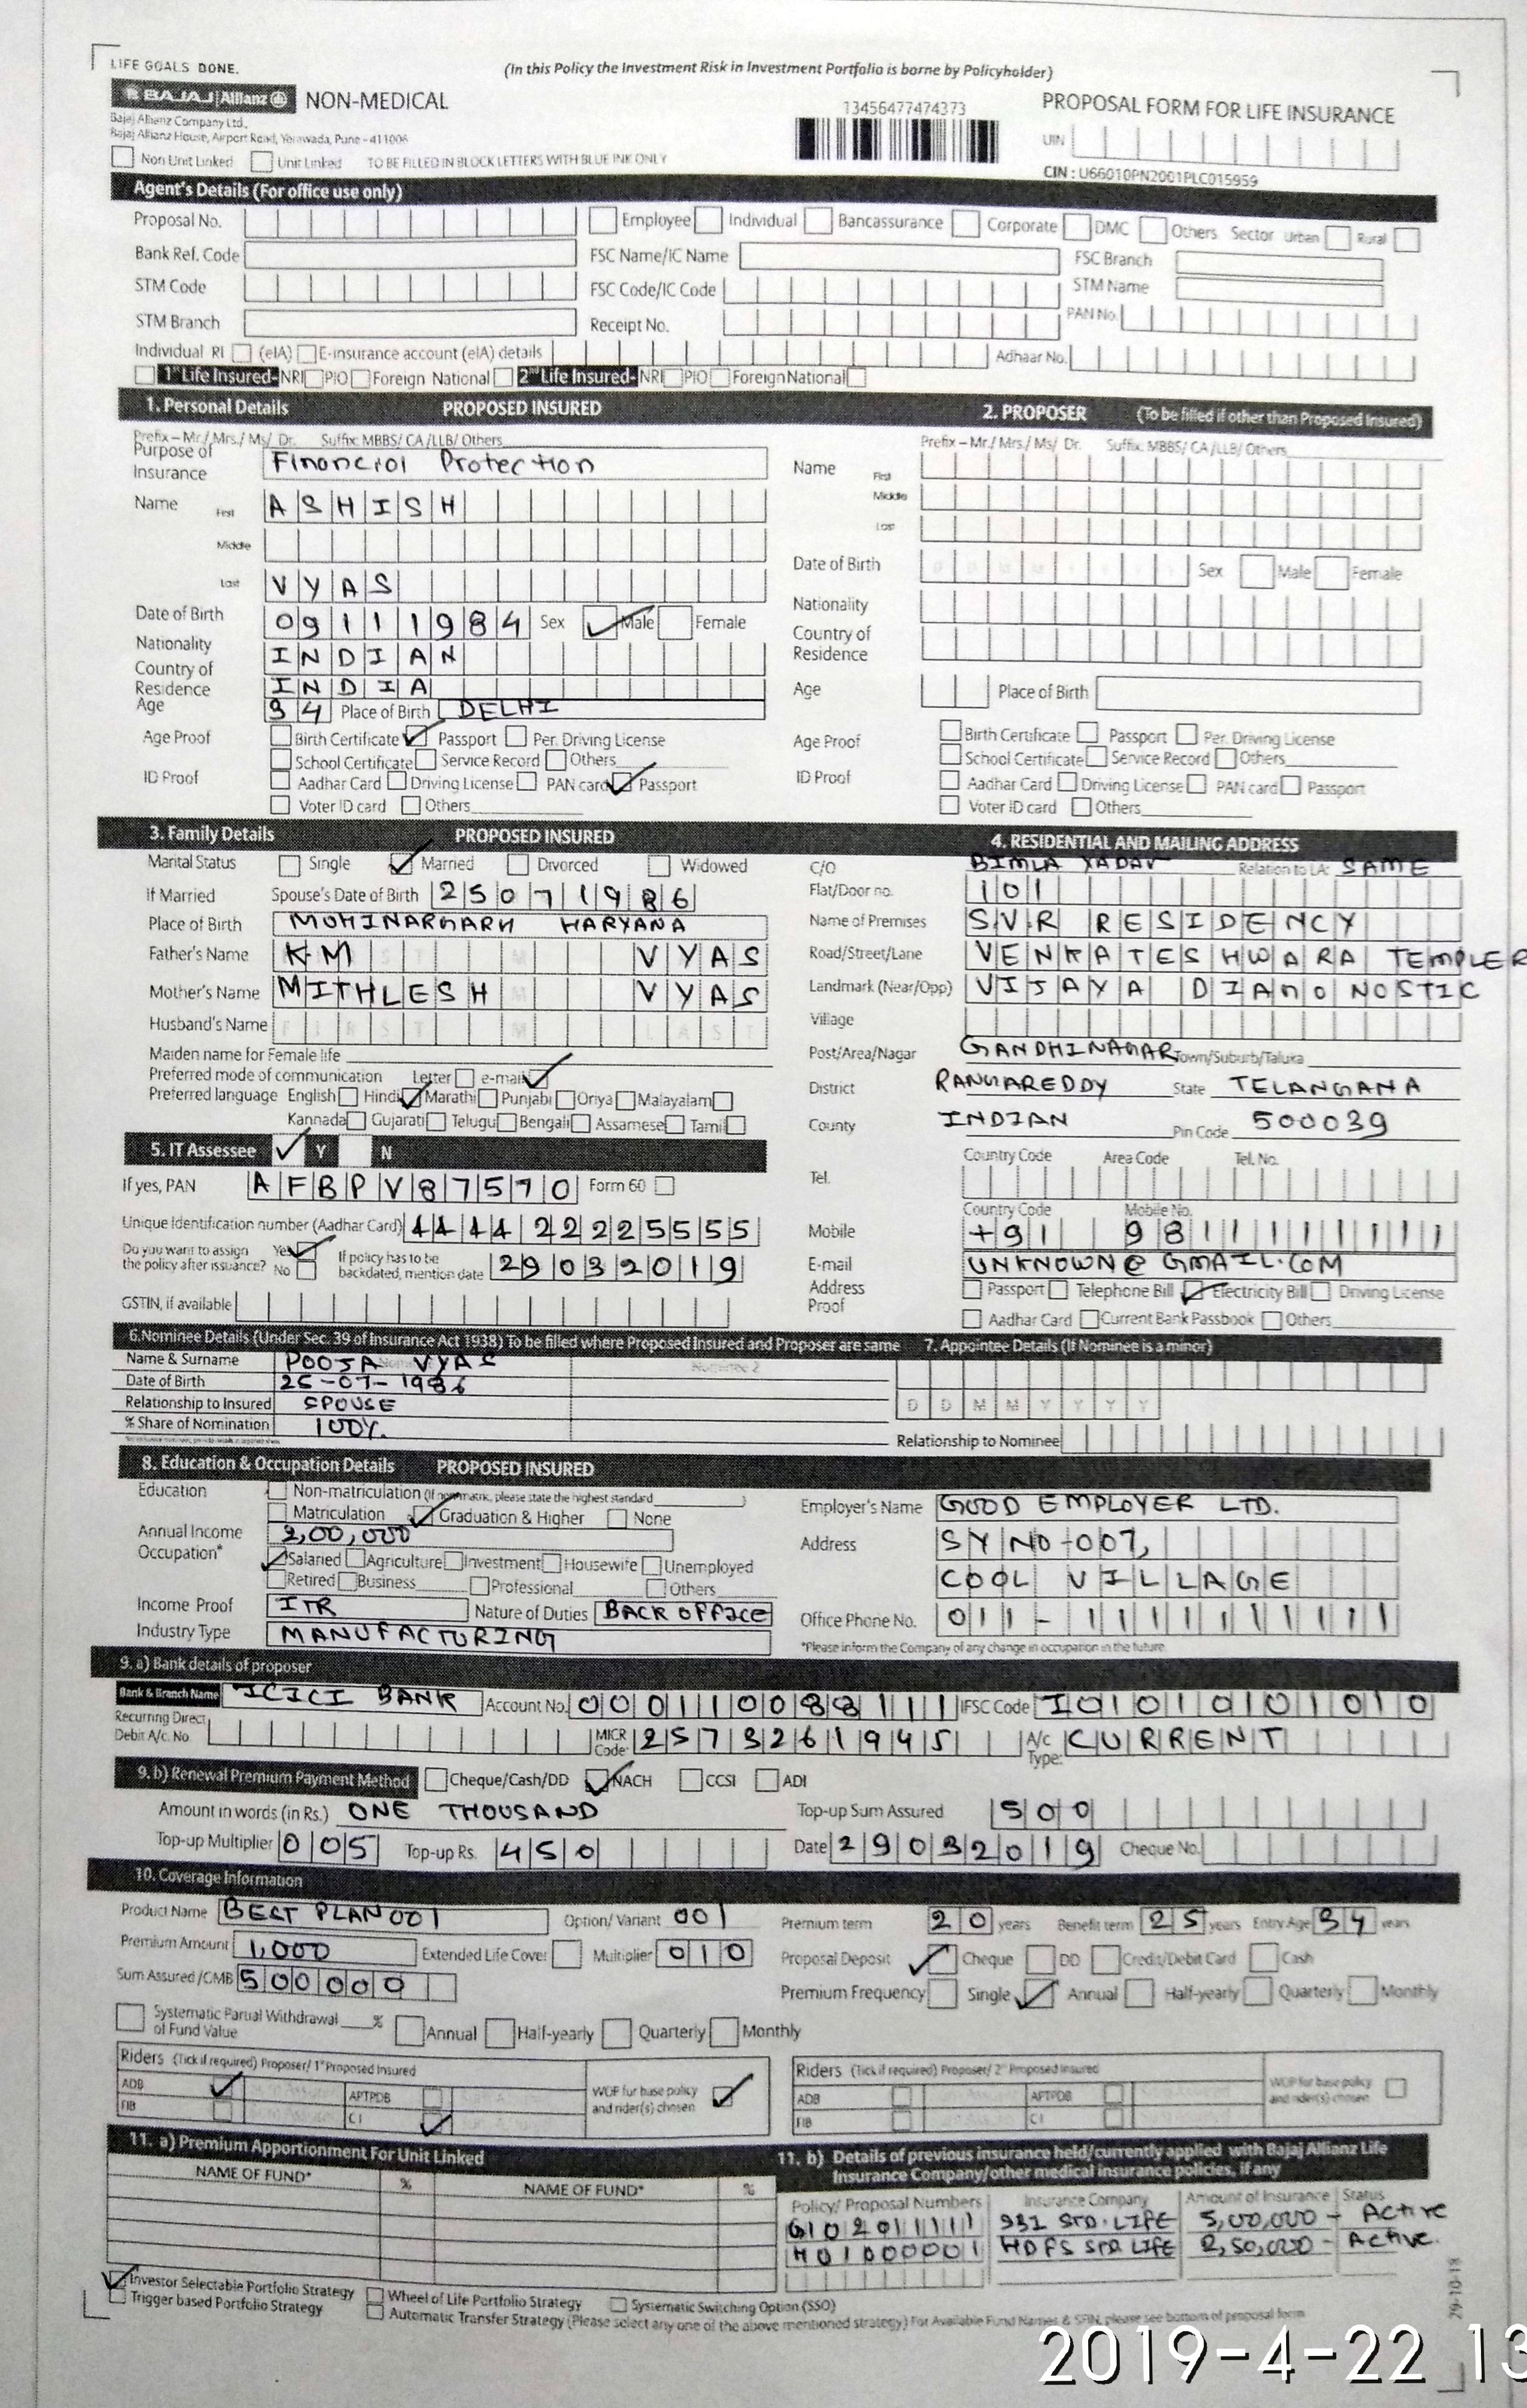 LIFE GOALS DONE.
(In this Policy the Investment Risk in Investment Portfolio is borne by Policyholder)
BAJAJ Allianz NON-MEDICAL
13456477474373
PROPOSAL FORM FOR LIFE INSURANCE
Bajaj Allianz Company Ltd.,
Bajaj Allianz House, Airport Road, Yerawada, Pune - 411006
UIN
Non Unit Linked Unit Linked TO BE FILLED IN BLOCK LETTERS WITH BLUE INK ONLY
CIN : U66010PN2001PLC015959
Agent's Details (For office use only)
Proposal No. Employee Individual Bancassurance Corporate DMC Others Sector Urban Rural
Bank Ref. Code FSC Name/IC Name FSC Branch
STM Code FSC Code/IC Code STM Name
STM Branch Receipt No. PAN No.
Individual RI (eIA) E-insurance account (eIA) details Adhaar No.
1st Life Insured- NRI PIO Foreign National 2nd Life Insured- NRI PIO Foreign National
1. Personal Details PROPOSED INSURED
Prefix – Mr./ Mrs./ Ms/ Dr. Suffix: MBBS/ CA /LLB/ Others
Purpose of Insurance Financial Protection
Name First ASHISH
Middle
Last VYAS
Date of Birth 09111984 Sex Male Female
Nationality INDIAN
Country of Residence INDIA
Age 34 Place of Birth DELHI
Age Proof Birth Certificate Passport Per. Driving License
School Certificate Service Record Others
ID Proof Aadhar Card Driving License PAN card Passport
Voter ID card Others
2. PROPOSER (To be filled if other than Proposed Insured)
Prefix – Mr./ Mrs./ Ms/ Dr. Suffix. MBBS/ CA /LLB/ Others
Name First
Middle
Last
Date of Birth Sex Male Female
Nationality
Country of Residence
Age Place of Birth
Age Proof Birth Certificate Passport Per. Driving License
School Certificate Service Record Others
ID Proof Aadhar Card Driving License PAN card Passport
Voter ID card Others
3. Family Details PROPOSED INSURED
Marital Status Single Married Divorced Widowed
If Married Spouse's Date of Birth 25071986
Place of Birth MOHINARGARH HARYANA
Father's Name KM VYAS
Mother's Name MITHLESH VYAS
Husband's Name
Maiden name for Female life
Preferred mode of communication Letter e-mail
Preferred language English Hindi Marathi Punjabi Oriya Malayalam
Kannada Gujarati Telugu Bengali Assamese Tamil
4. RESIDENTIAL AND MAILING ADDRESS
C/O BIMLA YADAV Relation to LA: SAME
Flat/Door no. 101
Name of Premises SVR RESIDENCY
Road/Street/Lane VENKATESHWARA TEMPLER
Landmark (Near/Opp) VIJAYA DIAGNOSTIC
Village
Post/Area/Nagar GANDHINAGAR Town/Suburb/Taluka
District RANGAREDDY State TELANGANA
County INDIAN Pin Code 500039
Country Code Area Code Tel. No.
Tel.
Country Code Mobile No.
Mobile +91 981111111111
E-mail UNKNOWN@GMAIL.COM
Address Proof Passport Telephone Bill Electricity Bill Driving License
Aadhar Card Current Bank Passbook Others
5. IT Assessee Y N
If yes, PAN AFBPV87570 Form 60
Unique Identification number (Aadhar Card) 444422225555
Do you want to assign the policy after issuance? Yes No If policy has to be backdated, mention date 29032019
GSTIN, if available
6.Nominee Details (Under Sec. 39 of Insurance Act 1938) To be filled where Proposed Insured and Proposer are same 7. Appointee Details (If Nominee is a minor)
Name & Surname POOJA VYAS Nominee 2
Date of Birth 25-07-1986
Relationship to Insured SPOUSE D D M M Y Y Y Y
% Share of Nomination 100%
Relationship to Nominee
8. Education & Occupation Details PROPOSED INSURED
Education Non-matriculation (If non matric, please state the highest standard )
Matriculation Graduation & Higher None
Annual Income 2,00,000
Occupation* Salaried Agriculture Investment Housewife Unemployed
Retired Business Professional Others
Income Proof ITR Nature of Duties BACK OFFICE
Industry Type MANUFACTURING
Employer's Name GOOD EMPLOYER LTD.
Address SY NO-007,
COOL VILLAGE
Office Phone No. 011-1111111111
*Please inform the Company of any change in occupation in the future.
9. a) Bank details of proposer
Bank & Branch Name ICICI BANK Account No. 000110088111 IFSC Code IO1010101010
Recurring Direct Debit A/c. No. MICR Code: 2573261945 A/c Type: CURRENT
9. b) Renewal Premium Payment Method Cheque/Cash/DD NACH CCSI ADI
Amount in words (in Rs.) ONE THOUSAND Top-up Sum Assured 500
Top-up Multiplier 005 Top-up Rs. 450 Date 29032019 Cheque No.
10. Coverage Information
Product Name BEST PLAN 001 Option/ Variant 001 Premium term 20 years Benefit term 25 years Entry Age 34 years
Premium Amount 1,000 Extended Life Cover Multiplier 010 Proposal Deposit Cheque DD Credit/Debit Card Cash
Sum Assured /CMB 500000 Premium Frequency Single Annual Half-yearly Quarterly Monthly
Systematic Partial Withdrawal % of Fund Value Annual Half-yearly Quarterly Monthly
Riders (Tick if required) Proposer/ 1st Proposed Insured
ADB APTPDB WOP for base policy and rider(s) chosen
FIB CI
Riders (Tick if required) Proposer/ 2nd Proposed Insured
ADB APTPDB WOP for base policy and rider(s) chosen
FIB CI
11. a) Premium Apportionment For Unit Linked
NAME OF FUND* % NAME OF FUND* %
11. b) Details of previous insurance held/currently applied with Bajaj Allianz Life Insurance Company/other medical insurance policies, if any
Policy/ Proposal Numbers Insurance Company Amount of Insurance Status
STD. LIFE 5,00,000 - Active
H01000001 HDFS STD LIFE 2,50,000 - Active.
Investor Selectable Portfolio Strategy Wheel of Life Portfolio Strategy Systematic Switching Option (SSO)
Trigger based Portfolio Strategy Automatic Transfer Strategy (Please select any one of the above mentioned strategy) For Available Fund Names & SFIN, please see bottom of proposal form
29-10-18
2019-4-22 13